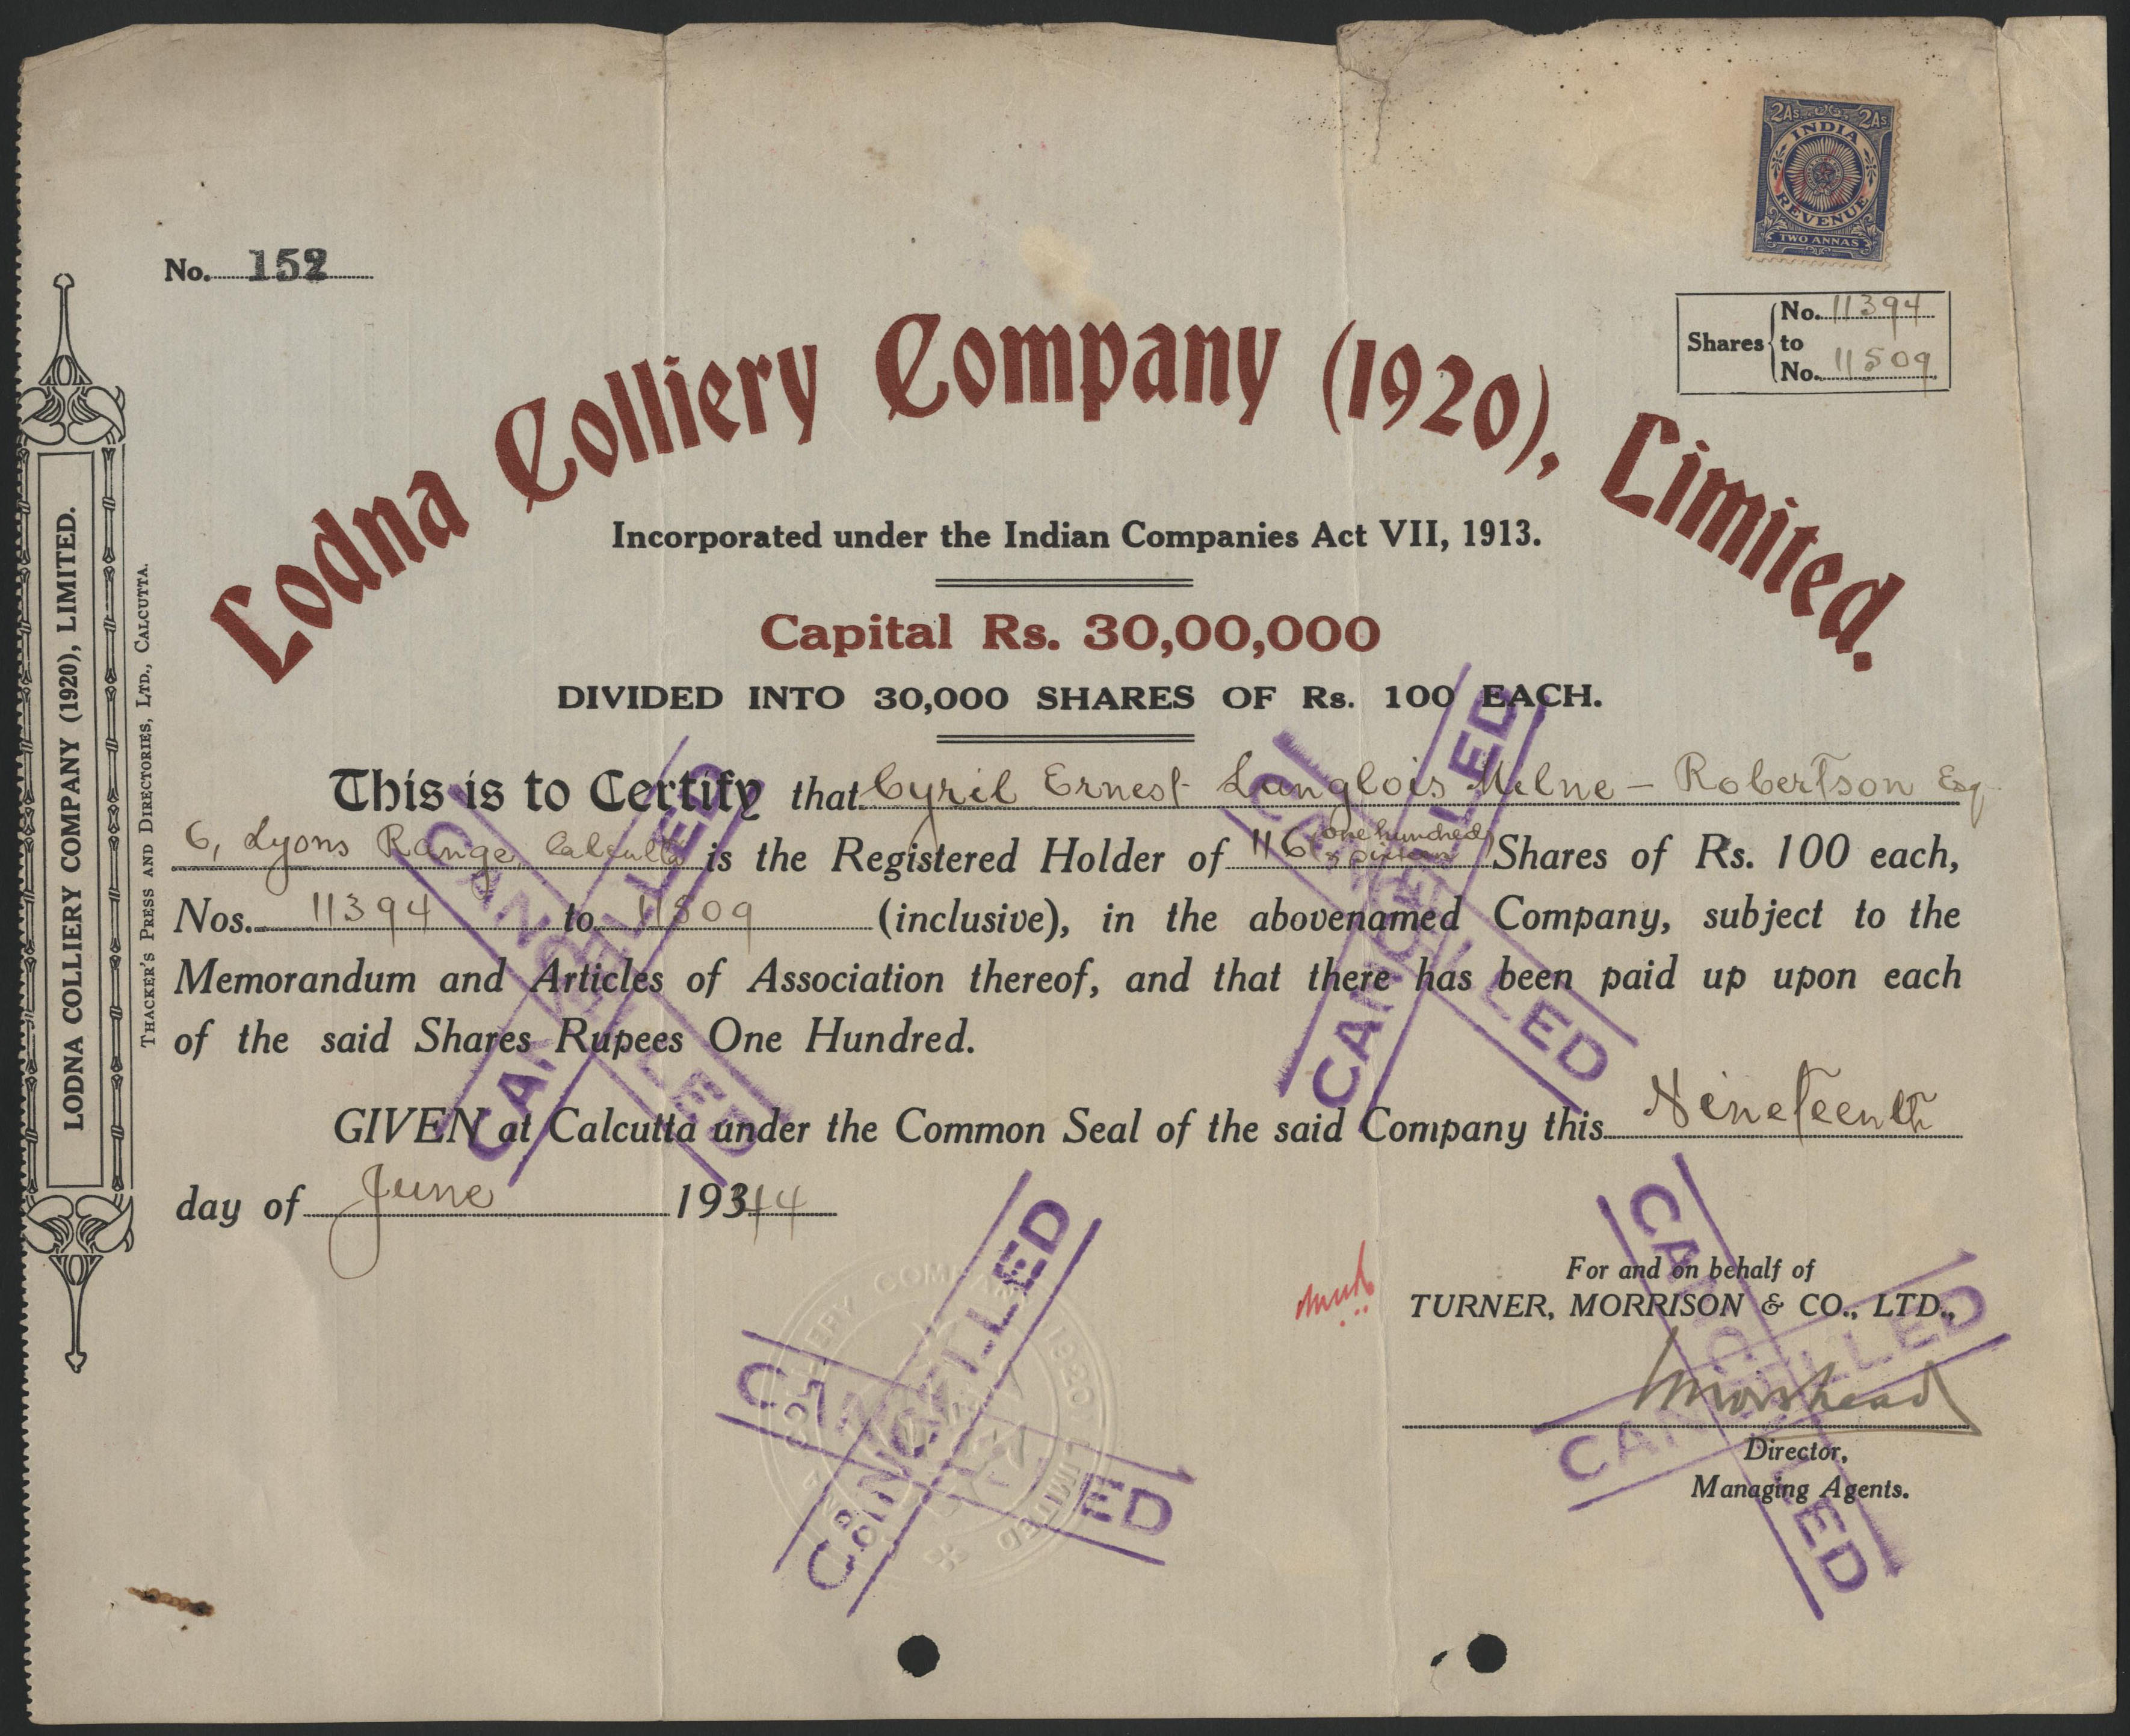 2As 2As
INDIA
REVENUE
TWO ANNAS
No. 152
Shares No. 11394
to
No. 11509
Lodna Colliery Company (1920), Limited.
Incorporated under the Indian Companies Act VII, 1913.
Capital Rs. 30,00,000
DIVIDED INTO 30,000 SHARES OF Rs. 100 EACH.
This is to Certify that Cyril Ernest Langlois Milne - Robertson Esq
6, Lyons Range, Calcutta is the Registered Holder of 116 (one hundred & sixteen) Shares of Rs. 100 each,
Nos. 11394 to 11509 (inclusive), in the abovenamed Company, subject to the
Memorandum and Articles of Association thereof, and that there has been paid up upon each
of the said Shares Rupees One Hundred.
GIVEN at Calcutta under the Common Seal of the said Company this Nineteenth
day of June 19344
For and on behalf of
TURNER, MORRISON & CO., LTD.,
Morshead
Director,
Managing Agents.
LODNA COLLIERY COMPANY (1920), LIMITED.
THACKER'S PRESS AND DIRECTORIES, LTD., CALCUTTA.
CANCELLED
CANCELLED
CANCELLED
CANCELLED
CANCELLED
CANCELLED
CANCELLED
CANCELLED
COLLIERY COMPANY 1920 LIMITED